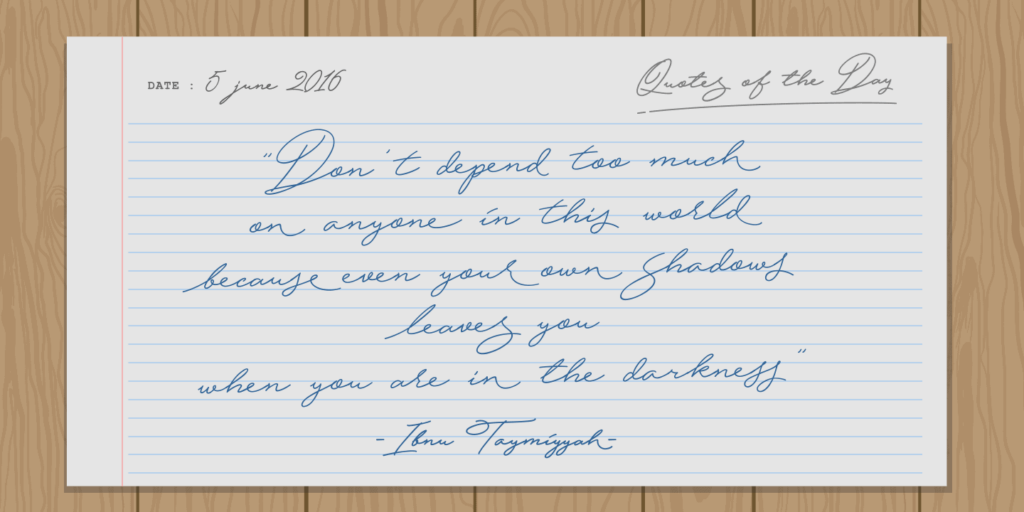 DATE : 5 june 2016
Quotes of the Day
"Don't depend too much
on anyone in this world
because even your own shadows
leaves you
when you are in the darkness"
-Ibnu Taymiyyah-